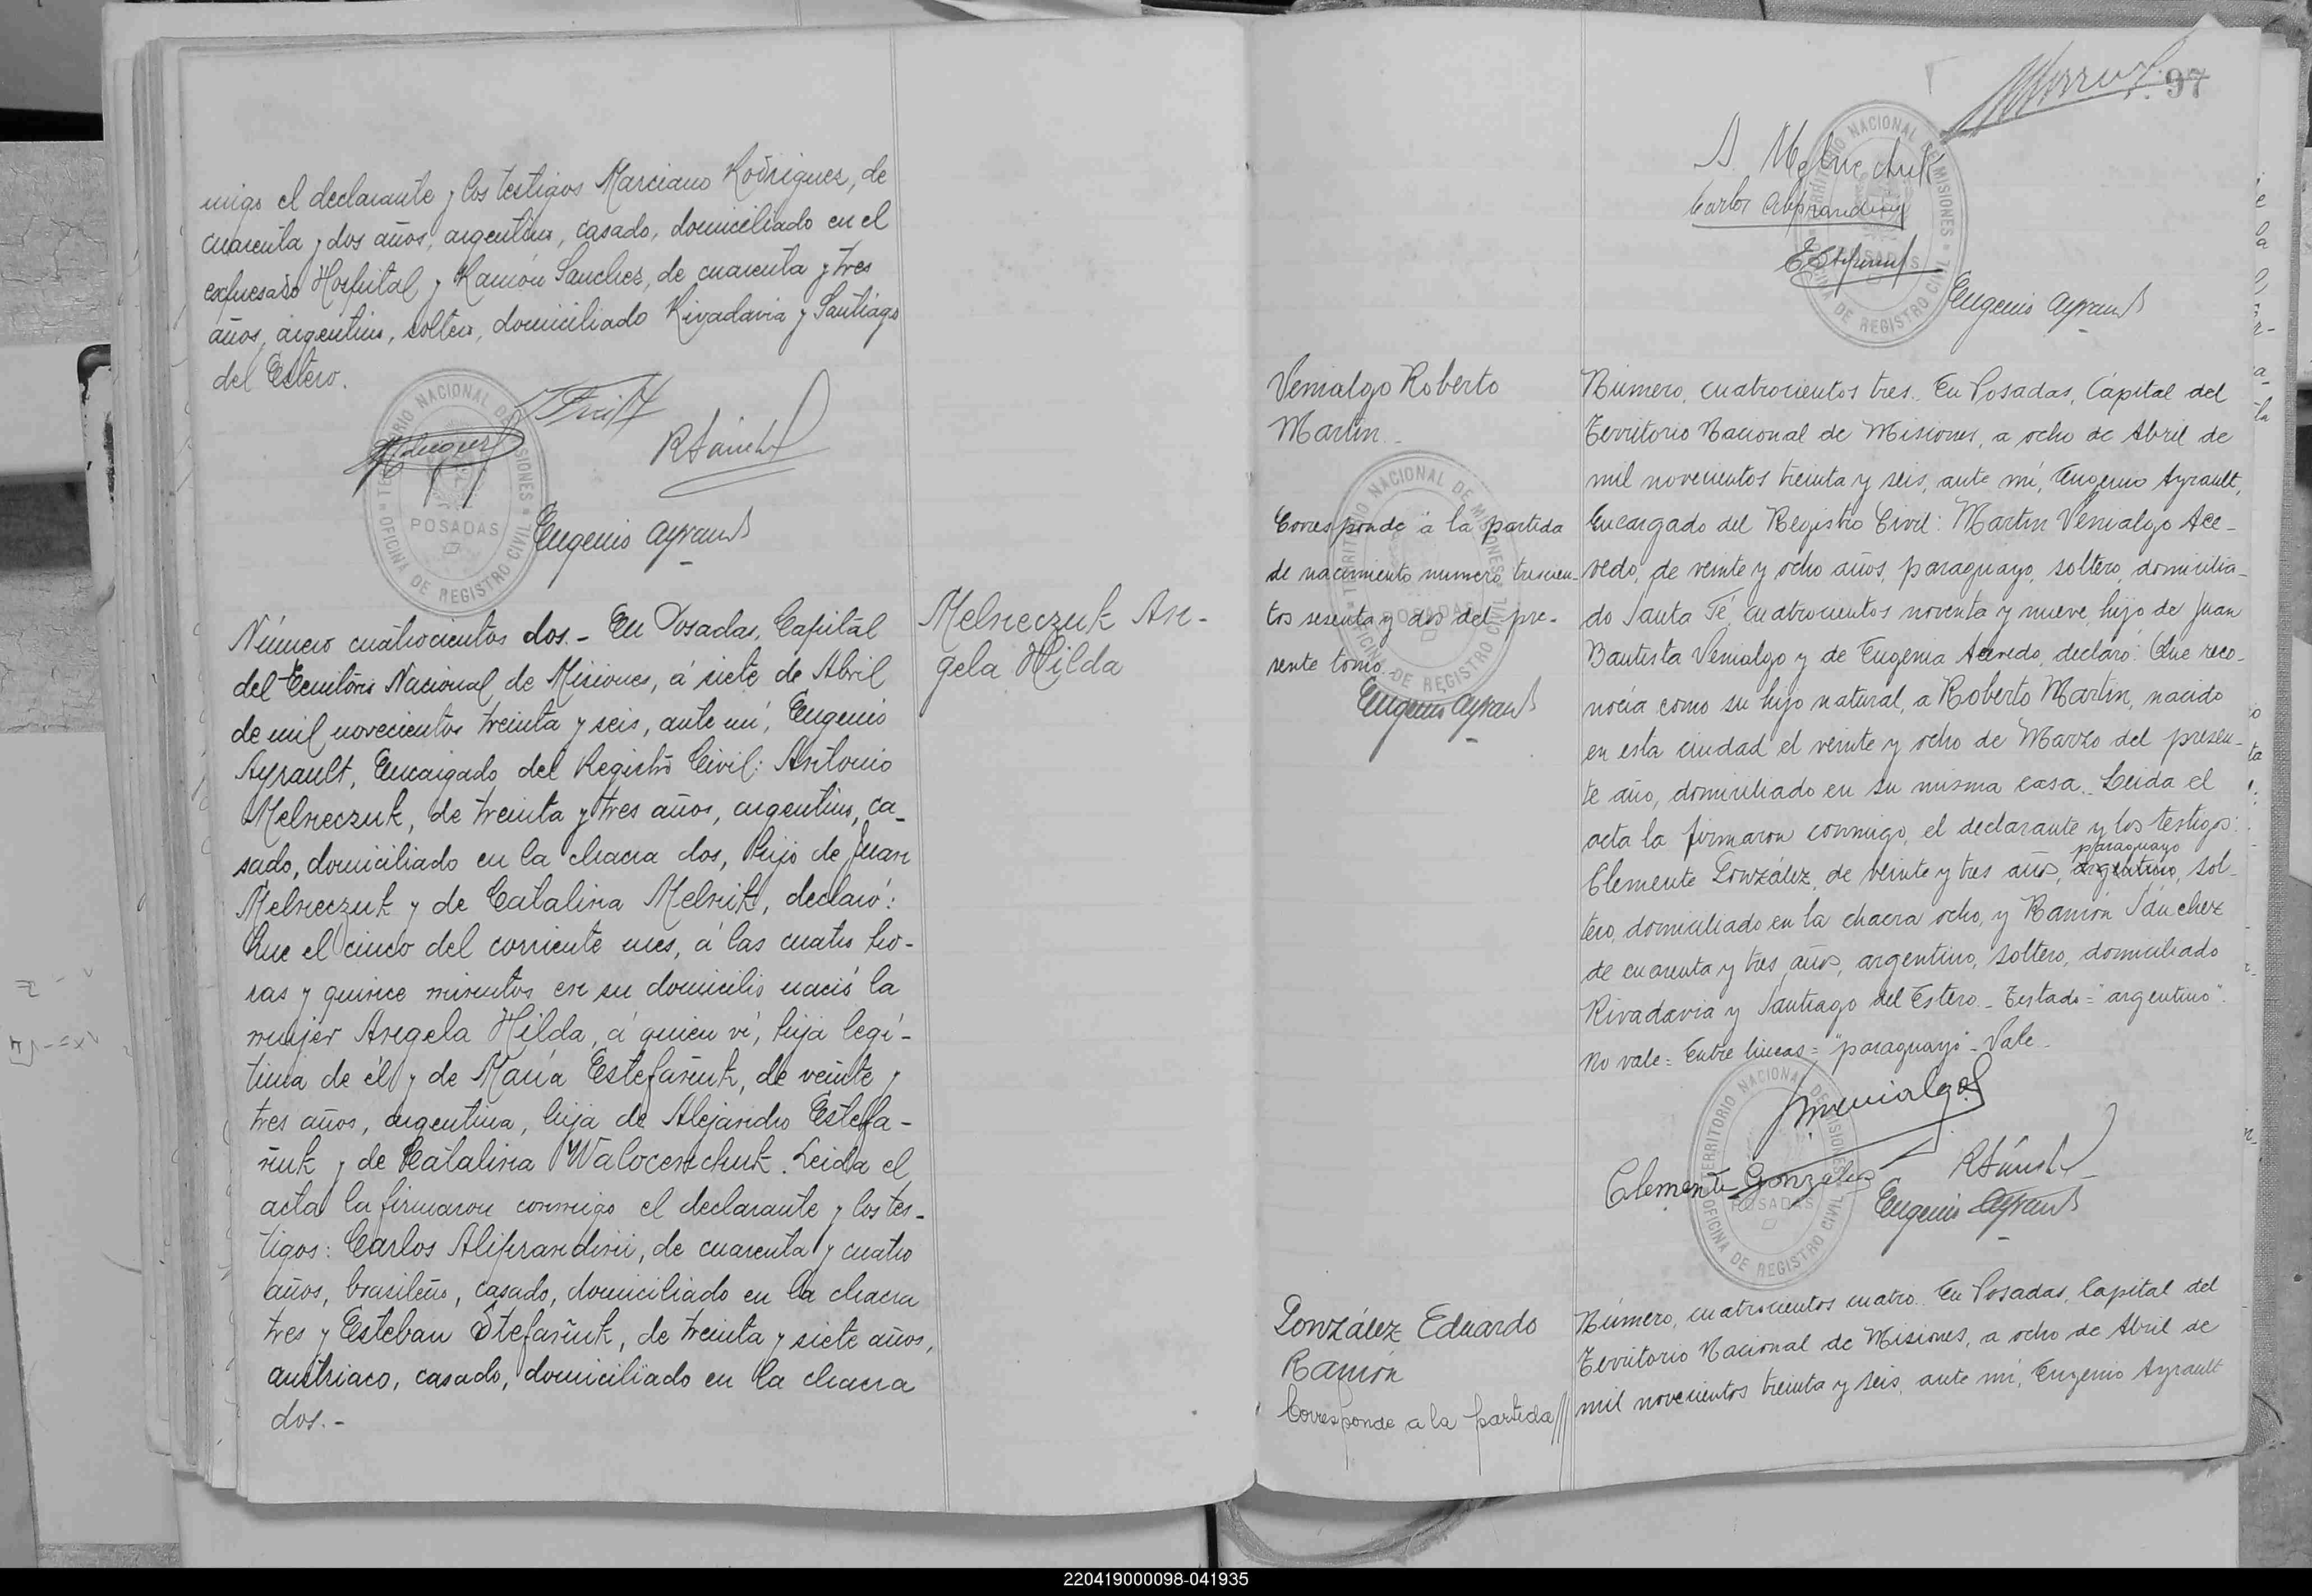 migo el declarante y los testigos Marciano Rodriguez, de
cuarenta y dos años, argentino, casado, domiciliado en el
expresado Hospital y Ramón Sanchez, de cuarenta y tres
años, argentino, soltero, domiciliado Rivadavia y Santiago
del Estero.
TERRITORIO NACIONAL DE MISIONES
POSADAS
OFICINA DE REGISTRO CIVIL
RSánchez
Eugenio Ayrault
Número cuatrocientos dos.- En Posadas, Capital
del Territorio Nacional de Misiones, á siete de Abril
de mil novecientos treinta y seis, ante mí, Eugenio
Ayrault, Encargado del Registro Civil: Antonio
Melneczuk, de treinta y tres años, argentino, ca-
sado, domiciliado en la chacra dos, hijo de Juan
Melneczuk y de Catalina Melnik, declaró:
Que el cinco del corriente mes, á las cuatro ho-
ras y quince minutos en su domicilio nació la
mujer Angela Hilda, á quien ví, hija legí-
tima de él y de María Estefañuk, de veinte y
tres años, argentina, hija de Alejandro Estefa-
ñuk y de Katalina Walocenchuk. Leida el
acta la firmaron conmigo el declarante y los tes-
tigos: Carlos Aliprandini, de cuarenta y cuatro
años, brasileño, casado, domiciliado en la chacra
tres y Esteban Stefañuk, de treinta y siete años,
austriaco, casado, domiciliado en la chacra
dos.-
Melneczuk An-
gela Hilda
97
A Melnechuk
Carlos Aliprandini
TERRITORIO NACIONAL DE MISIONES
POSADAS
OFICINA DE REGISTRO CIVIL
Eugenio Ayrault
Venialgo Roberto
Martin.-
Corresponde á la partida
de nacimiento numero trescien-
tos sesenta y dos del pre-
sente tomo.
TERRITORIO NACIONAL DE MISIONES
POSADAS
OFICINA DE REGISTRO CIVIL
Eugenio Ayrault
Número, cuatrocientos tres. En Posadas, Capital del
Territorio Nacional de Misiones, a ocho de Abril de
mil novecientos treinta y seis, ante mí, Eugenio Ayrault,
Encargado del Registro Civil: Martin Venialgo Ace-
vedo, de veinte y ocho años, paraguayo, soltero, domicilia-
do Santa Fé, cuatrocientos noventa y nueve, hijo de Juan
Bautista Venialgo y de Eugenia Acevedo, declaró: Que reco-
nocía como su hijo natural, a Roberto Martin, nacido
en esta ciudad el veinte y ocho de Marzo del presen-
te año, domiciliado en su misma casa. Leida el
acta la firmaron conmigo, el declarante y los testigos:
paraguayo
Clemente González, de veinte y tres años, argentino, sol-
tero, domiciliado en la chacra ocho, y Ramón Sánchez
de cuarenta y tres años, argentino, soltero, domiciliado
Rivadavia y Santiago del Estero.- Testado="argentino".
No vale= Entre lineas= "paraguayo"- Vale-
TERRITORIO NACIONAL DE MISIONES
POSADAS
OFICINA DE REGISTRO CIVIL
Clemente González
RSánchez
Eugenio Ayrault
González Eduardo
Ramón
Corresponde a la partida///
Número, cuatrocientos cuatro. En Posadas, Capital del
Territorio Nacional de Misiones, a ocho de Abril de
mil novecientos treinta y seis, ante mí, Eugenio Ayrault
220419000098-041935